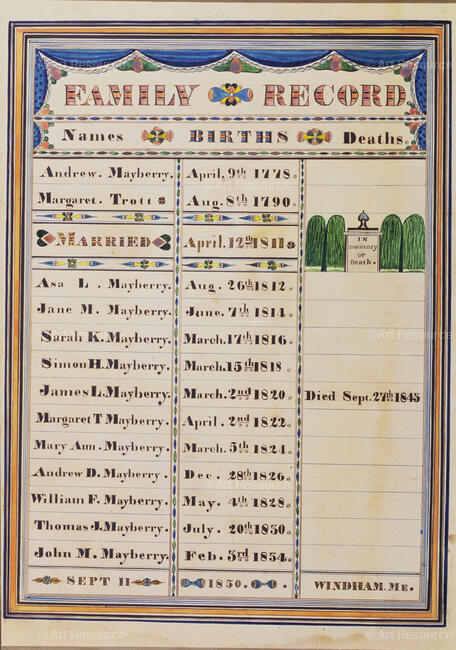 FAMILY RECORD
Names BIRTHS Deaths.
Andrew. Mayberry. April, 9th 1778.
Margaret. Trott Aug. 8th 1790.
MARRIED April. 12th 1811
IN
memory
OF
Death.
Asa L. Mayberry. Aug. 26th 1812.
Jane M. Mayberry. June. 7th 1814.
Sarah K. Mayberry. March. 17th 1816.
Simon H. Mayberry. March. 15th 1818.
James L. Mayberry. March. 2nd 1820. Died Sept. 27th 1843
Margaret T Mayberry. April. 2nd 1822.
Mary Ann. Mayberry. March. 5th 1824.
Andrew D. Mayberry. Dec. 28th 1826.
William F. Mayberry. May. 4th 1828.
Thomas J. Mayberry. July. 20th 1830.
John M. Mayberry. Feb. 3rd 1834.
SEPT 11 1850. WINDHAM. ME.
© Art Resource
© Art Resource
© Art Resource
© Art Resource
© Art Resource